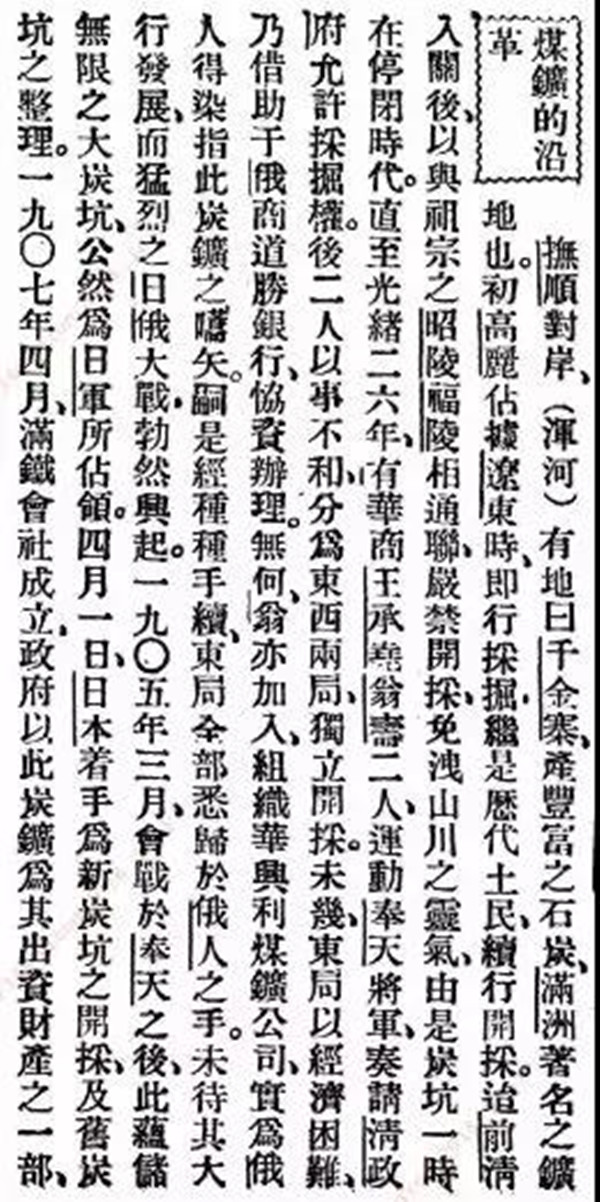 煤鑛的沿
革
撫順對岸、（渾河）有地曰千金寨、產豐富之石炭、滿洲著名之鑛
地也。初高麗佔據遼東時、即行採掘、繼是歷代土民、續行開採。迨前清
入關後、以與祖宗之昭陵福陵相通聯、嚴禁開採、免洩山川之靈氣、由是炭坑一時
在停閉時代。直至光緒二六年、有華商王承堯翁壽二人、運動奉天將軍、奏請清政
府允許採掘權。後二人以事不和、分爲東西兩局、獨立開採。未幾、東局以經濟困難、
乃借助于俄商道勝銀行、協資辦理。無何、翁亦加入、組織華興利煤鑛公司、實爲俄
人得染指此炭鑛之嚆矢。嗣是經種種手續、東局全部悉歸於俄人之手。未待其大
行發展、而猛烈之日俄大戰、勃然興起。一九〇五年三月、會戰於奉天之後、此蘊儲
無限之大炭坑、公然爲日軍所佔領。四月一日、日本着手爲新炭坑之開採、及舊炭
坑之整理。一九〇七年四月、滿鐵會社成立、政府以此炭鑛爲其出資財產之一部、